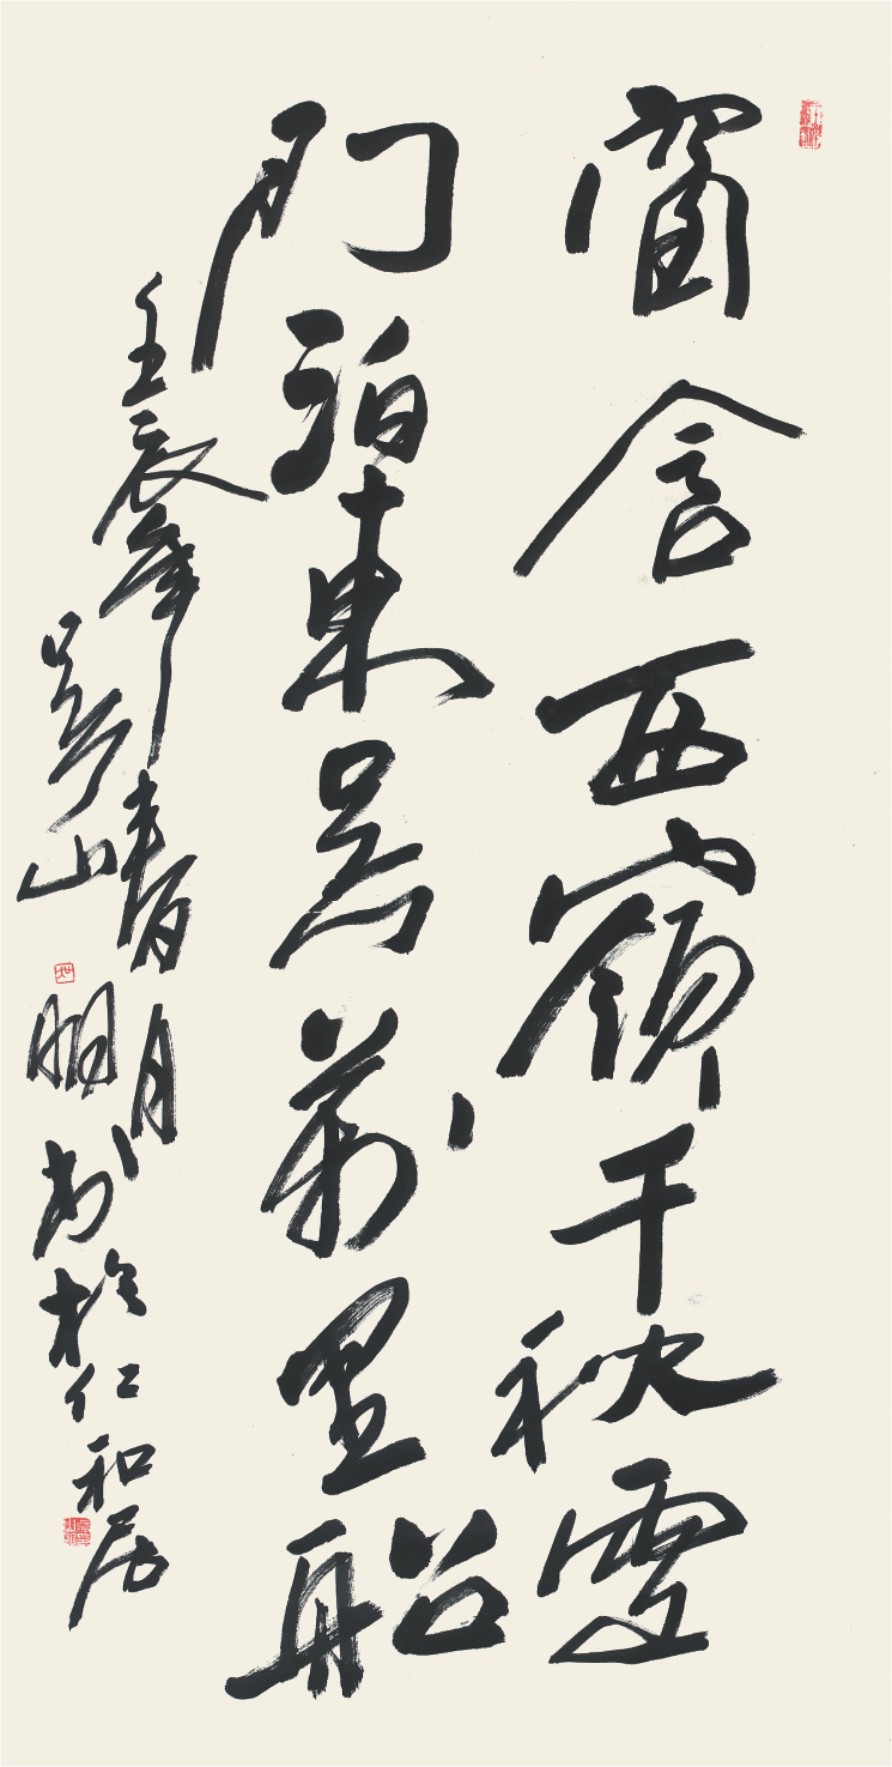 窗含西嶺千秋雪
門泊東吳萬里船
壬辰年春月
吳山明書於仁和居